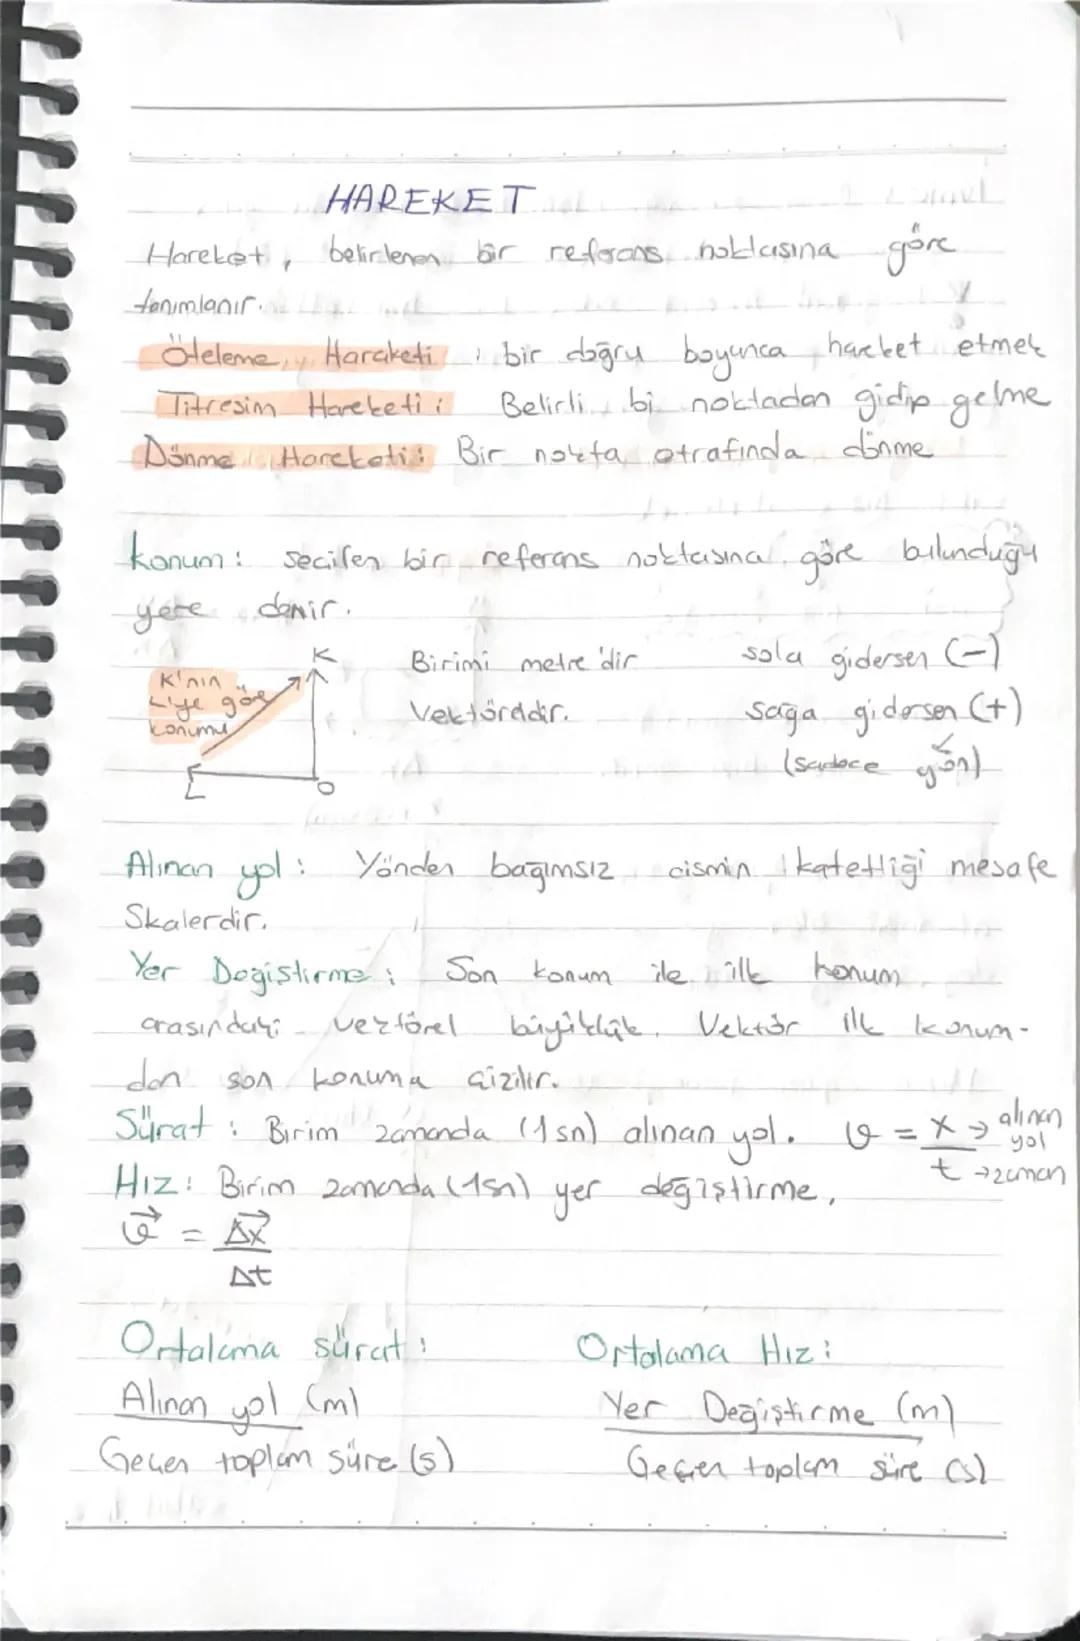 HAREKET
Hareket, belirlenen bir referans noktasına göre
tanımlanır.
Öteleme Hareketi : bir doğru boyunca hareket etmek
Titresim Hareketi : Belirli bi noktadan gidip gelme
Dönme Hareketi : Bir nokta etrafında dönme
Konum : secilen bir referans noktasına göre bulunduğu
yere denir.
K
K'nın
L'ye göre
konumu
L
O
Birimi metre'dir
Vektördür.
sola gidersen (-)
sağa gidersen (+)
(sadece yön)
Alınan yol : Yönden bağımsız cismin katettiği mesafe
Skalerdir.
Yer Değiştirme : Son konum ile ilk konum
arasındaki vektörel büyüklük. Vektör ilk konum-
dan son konuma çizilir.
Sürat : Birim zamanda (1sn) alınan yol. v = x → alınan yol / t → zaman
Hız : Birim zamanda (1sn) yer değiştirme.
v⃗ = Δx⃗ / Δt
Ortalama sürat :
Alınan yol (m)
Geçen toplam süre (s)
Ortalama Hız :
Yer Değiştirme (m)
Geçen toplam süre (s)